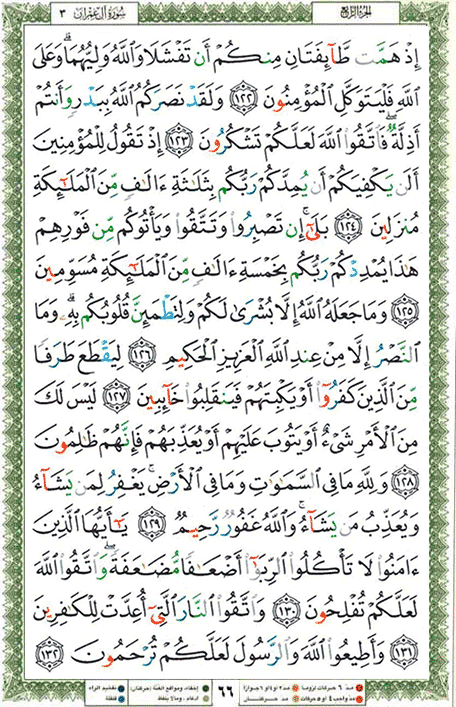 الجزء الرابع
سورة آل عمران ٣
إِذْ هَمَّت طَّآئِفَتَانِ مِنكُمْ أَن تَفْشَلَا وَٱللَّهُ وَلِيُّهُمَا ۗ وَعَلَى
ٱللَّهِ فَلْيَتَوَكَّلِ ٱلْمُؤْمِنُونَ ١٢٢ وَلَقَدْ نَصَرَكُمُ ٱللَّهُ بِبَدْرٍ وَأَنتُمْ
أَذِلَّةٌ ۖ فَٱتَّقُوا۟ ٱللَّهَ لَعَلَّكُمْ تَشْكُرُونَ ١٢٣ إِذْ تَقُولُ لِلْمُؤْمِنِينَ
أَلَن يَكْفِيَكُمْ أَن يُمِدَّكُمْ رَبُّكُم بِثَلَٰثَةِ ءَالَٰفٍ مِّنَ ٱلْمَلَٰٓئِكَةِ
مُنزَلِينَ ١٢٤ بَلَىٰٓ ۚ إِن تَصْبِرُوا۟ وَتَتَّقُوا۟ وَيَأْتُوكُم مِّن فَوْرِهِمْ
هَٰذَا يُمْدِدْكُمْ رَبُّكُم بِخَمْسَةِ ءَالَٰفٍ مِّنَ ٱلْمَلَٰٓئِكَةِ مُسَوِّمِينَ
١٢٥ وَمَا جَعَلَهُ ٱللَّهُ إِلَّا بُشْرَىٰ لَكُمْ وَلِتَطْمَئِنَّ قُلُوبُكُم بِهِۦ ۗ وَمَا
ٱلنَّصْرُ إِلَّا مِنْ عِندِ ٱللَّهِ ٱلْعَزِيزِ ٱلْحَكِيمِ ١٢٦ لِيَقْطَعَ طَرَفًا
مِّنَ ٱلَّذِينَ كَفَرُوٓا۟ أَوْ يَكْبِتَهُمْ فَيَنقَلِبُوا۟ خَآئِبِينَ ١٢٧ لَيْسَ لَكَ
مِنَ ٱلْأَمْرِ شَىْءٌ أَوْ يَتُوبَ عَلَيْهِمْ أَوْ يُعَذِّبَهُمْ فَإِنَّهُمْ ظَٰلِمُونَ
١٢٨ وَلِلَّهِ مَا فِى ٱلسَّمَٰوَٰتِ وَمَا فِى ٱلْأَرْضِ ۚ يَغْفِرُ لِمَن يَشَآءُ
وَيُعَذِّبُ مَن يَشَآءُ ۚ وَٱللَّهُ غَفُورٌ رَّحِيمٌ ١٢٩ يَٰٓأَيُّهَا ٱلَّذِينَ
ءَامَنُوا۟ لَا تَأْكُلُوا۟ ٱلرِّبَوٰٓا۟ أَضْعَٰفًا مُّضَٰعَفَةً ۖ وَٱتَّقُوا۟ ٱللَّهَ
لَعَلَّكُمْ تُفْلِحُونَ ١٣٠ وَٱتَّقُوا۟ ٱلنَّارَ ٱلَّتِىٓ أُعِدَّتْ لِلْكَٰفِرِينَ
١٣١ وَأَطِيعُوا۟ ٱللَّهَ وَٱلرَّسُولَ لَعَلَّكُمْ تُرْحَمُونَ ١٣٢
مد ٦ حركات لزوماً مد ٢ او ٤ او ٦ جوازاً
مد واجب ٤ او ٥ حركات مد حركتان
٦٦
إخفاء، ومواقع الغنة (حركتان) تفخيم الراء
ادغام، وما لا يلفظ قلقلة